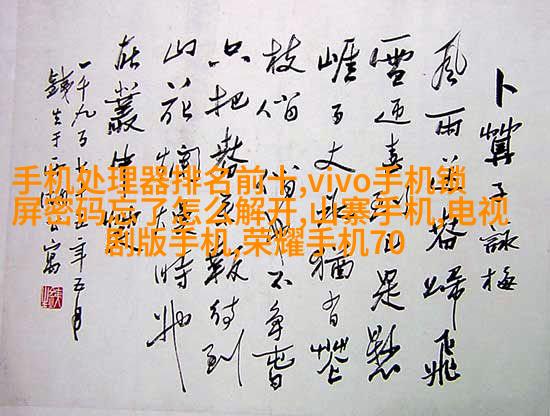 卜算子詠梅
風雨送春歸飛
雪迎春到已是懸
崖百丈冰猶有花
枝俏俏也不爭春
只把春來報待到
山花爛漫時她
在叢中笑
一千九百七十年五月
寫
手机处理器排名前十,vivo手机锁
屏密码忘了怎么解开,山寨手机,电视
剧版手机,荣耀手机70